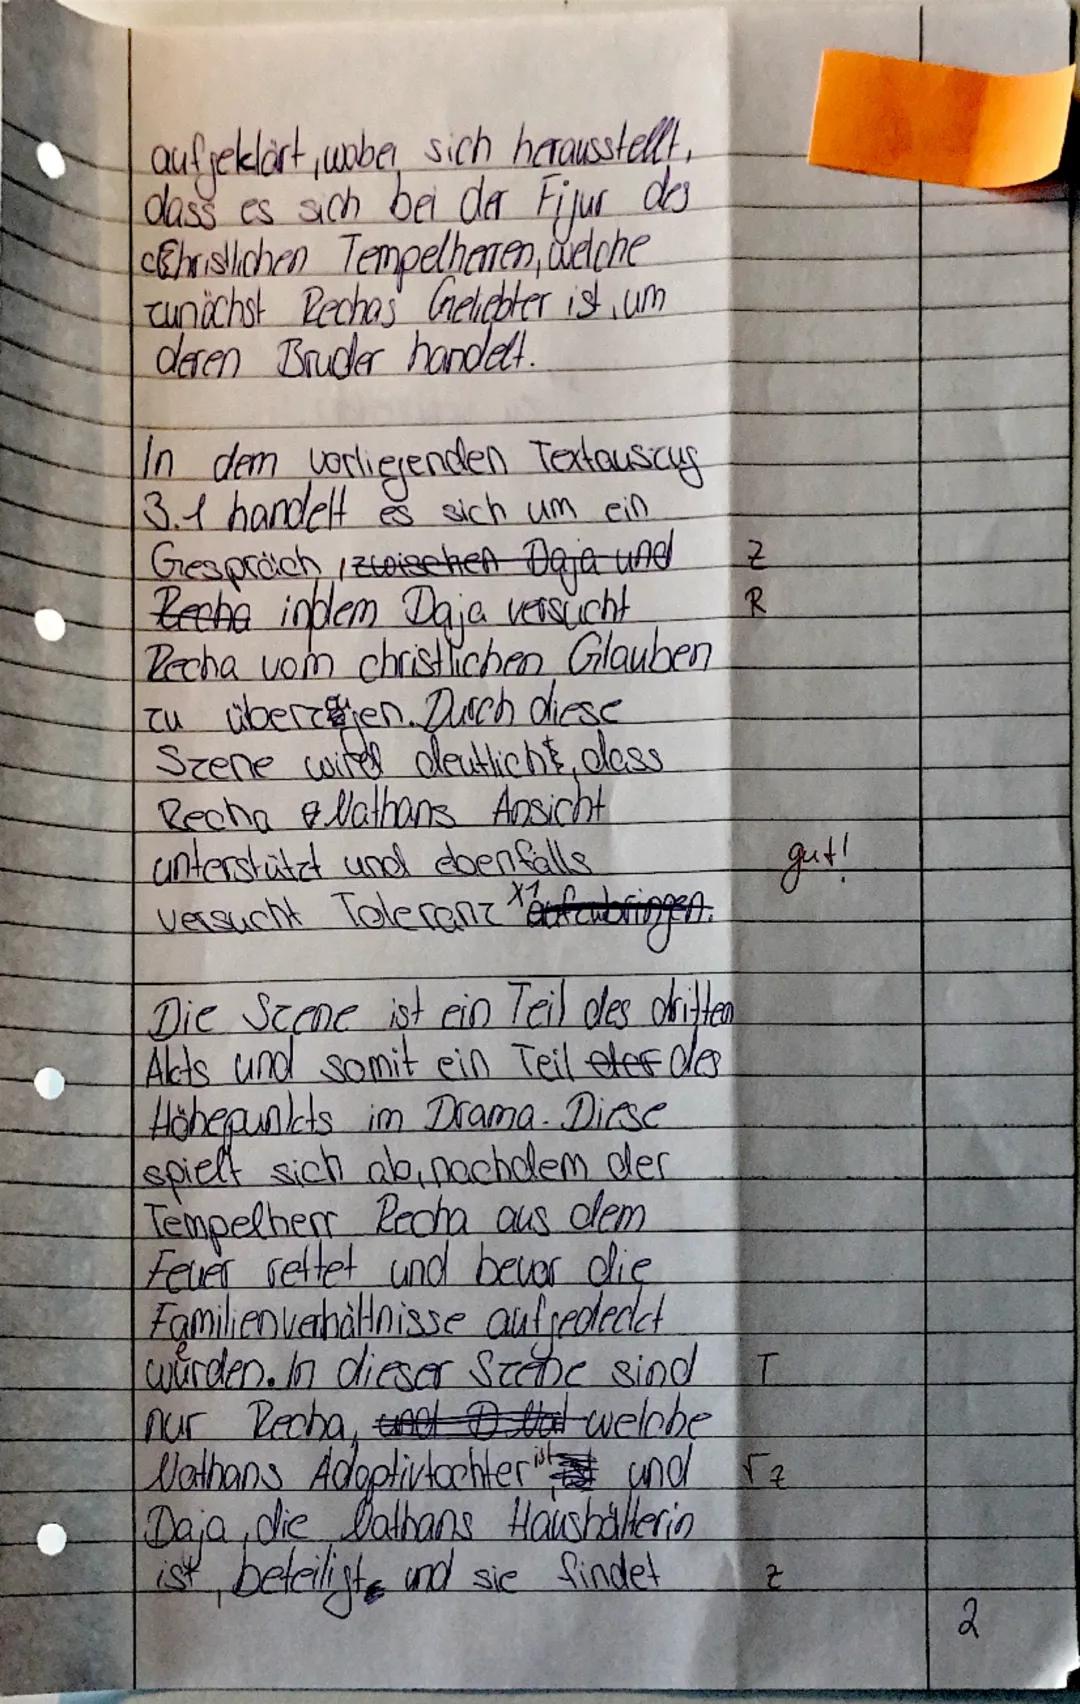 aufgeklärt, wobei sich herausstellt,
dass es sich bei der Figur des
christlichen Tempelherren, welche
zunächst Rechas Geliebter ist, um
deren Bruder handelt.
In dem vorliegenden Textauszug
3.1 handelt es sich um ein
Gespräch, zwischen Daja und Z
Recha indem Daja versucht R
Recha vom christlichen Glauben
zu überzeugen. Durch diese
Szene wird deutlich, dass
Recha Nathans Ansicht
unterstützt und ebenfalls gut!
versucht Toleranz x1 aufzubringen.
Die Szene ist ein Teil des dritten
Akts und somit ein Teil der des
Höhepunkts im Drama. Diese
spielt sich ab, nachdem der
Tempelherr Recha aus dem
Feuer rettet und bevor die
Familienverhältnisse aufgedeckt
werden. In dieser Szene sind T
nur Recha, und welche
Nathans Adoptivtochter ist und √z
Daja, die Nathans Haushälterin
ist, beteiligt und sie findet z
2